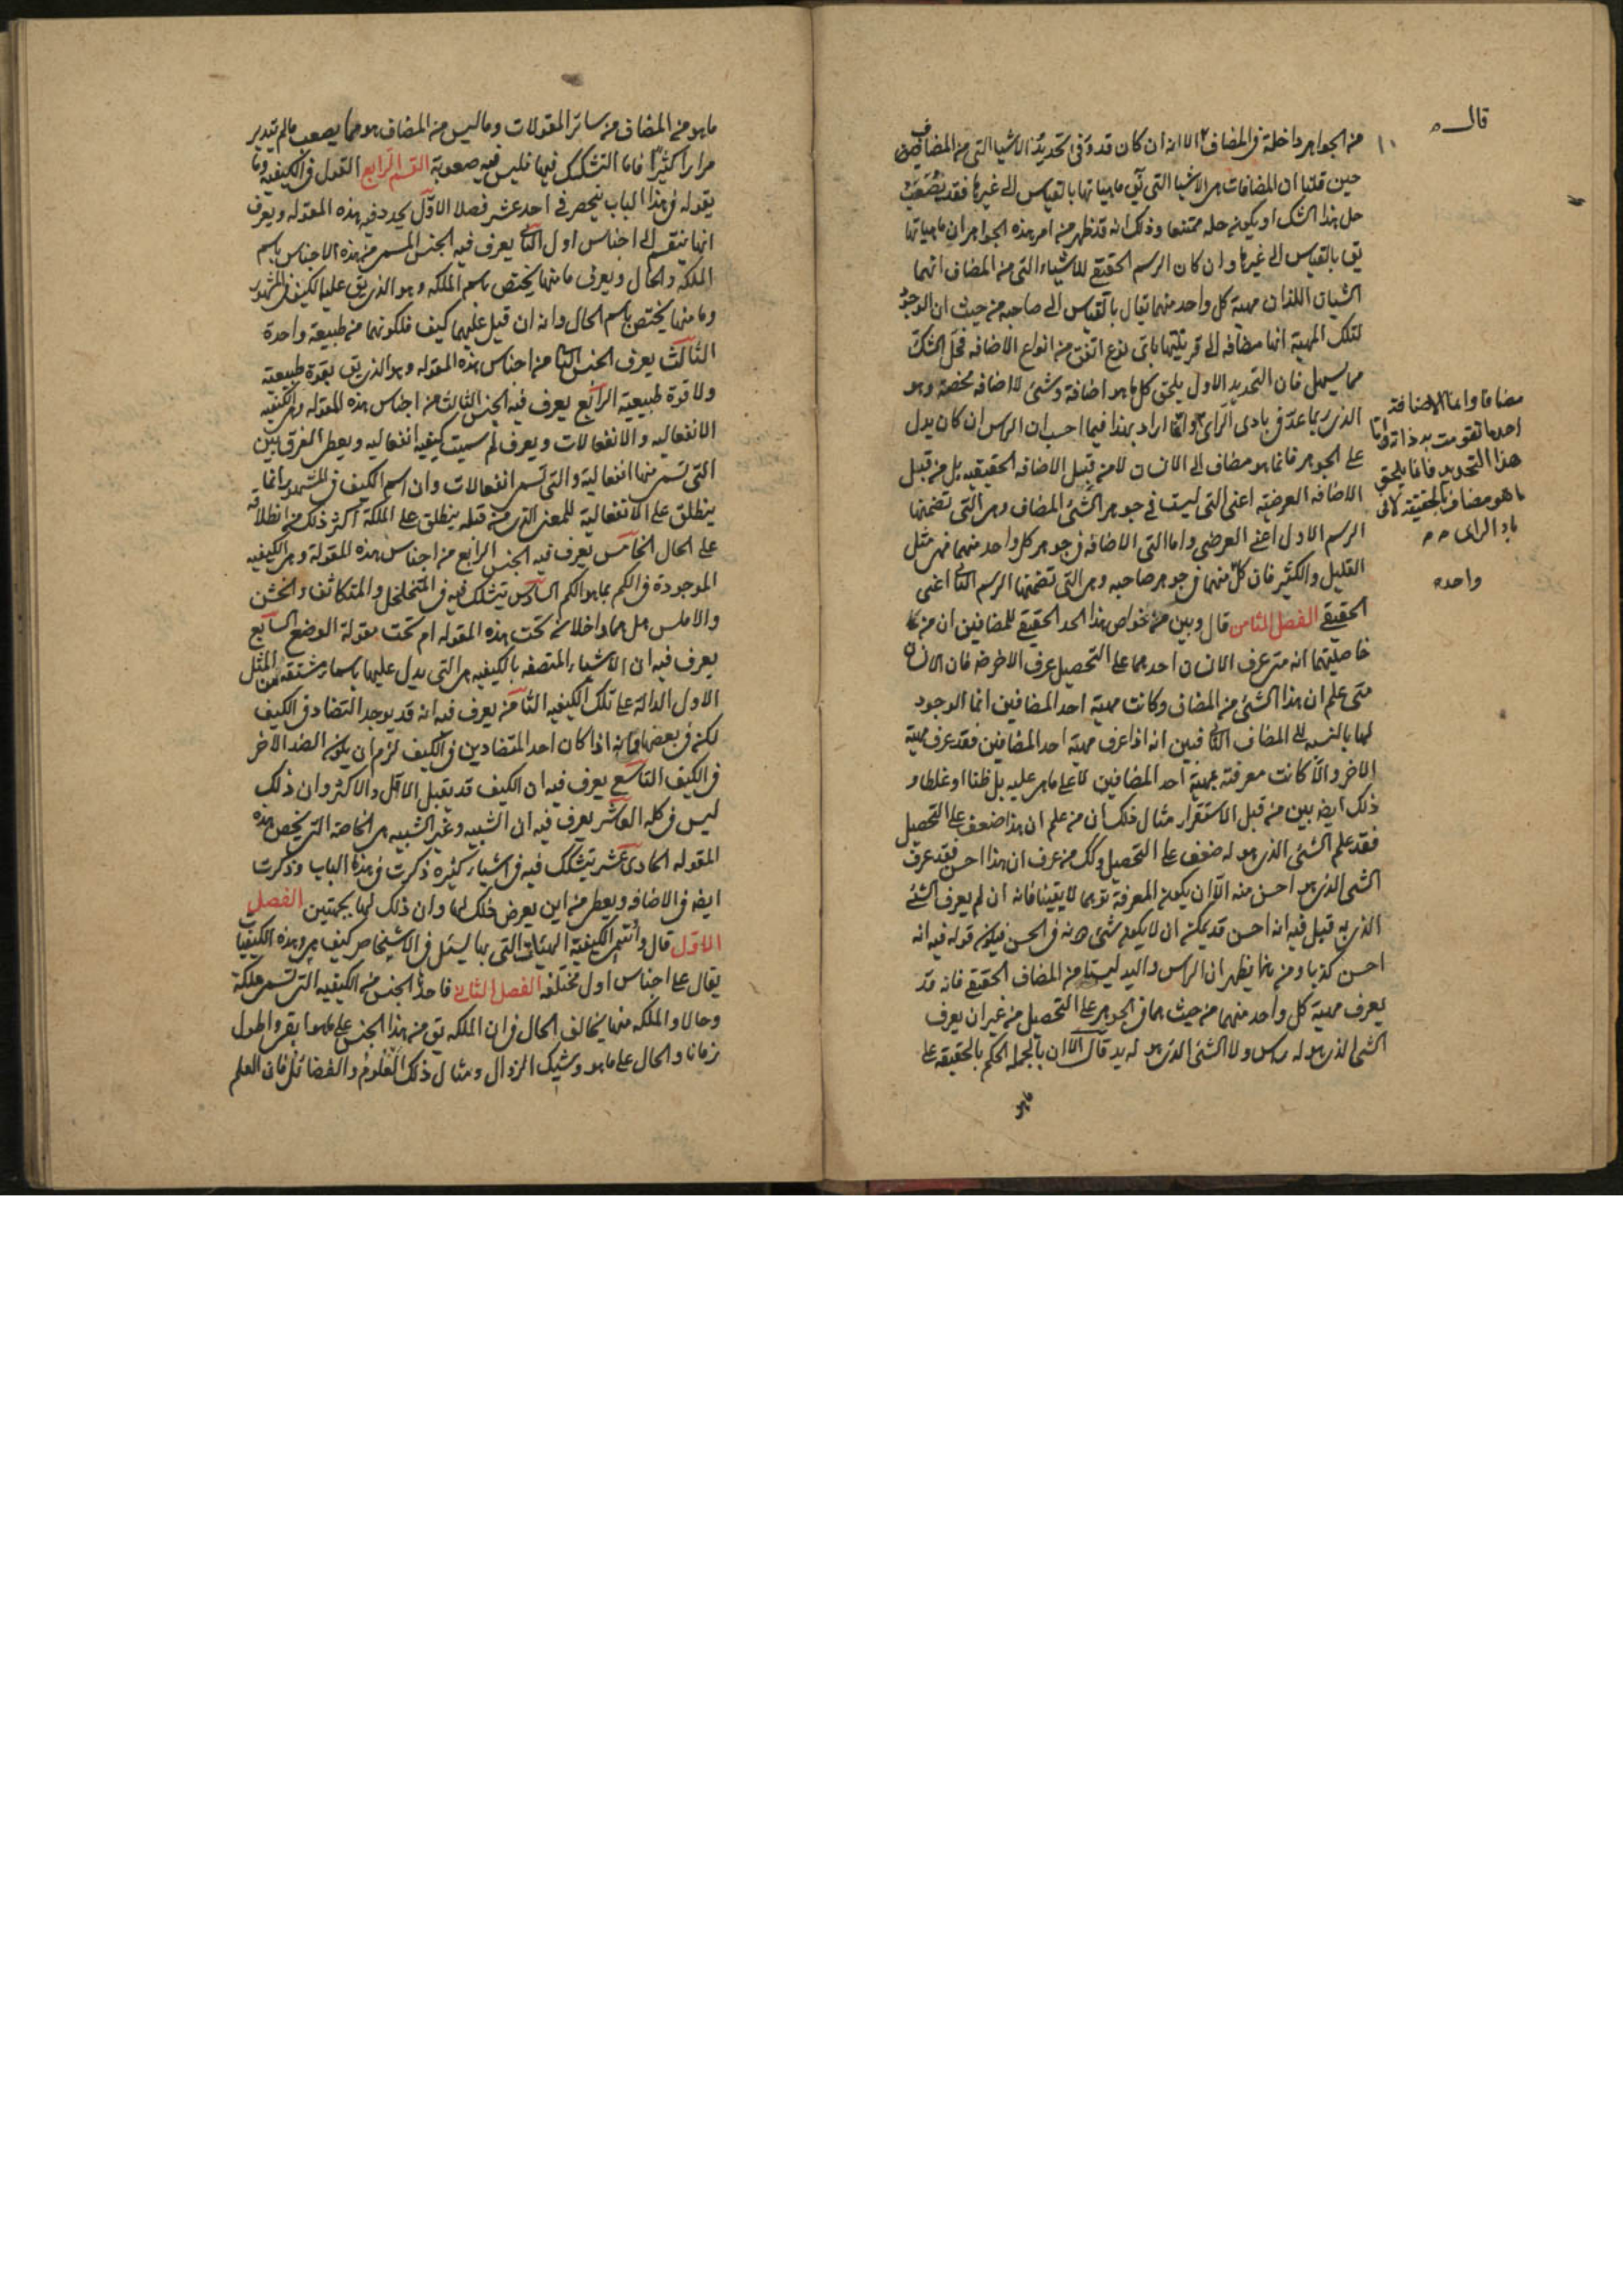 قال
من الجواهر داخلة في المضاف الا انه ان كان قد وفى تحديد الاشيا التي من المضاف
حين قلنا ان المضافات هي الاشيا التي يق ماهياتها بالقياس الى غيرها فقد يصعب
حل هذا الشك او يكون حله ممتنعا وذلك انه قد ظهر من امر هذه الجواهر ان ماهياتها
يق بالقياس الى غيرها وان كان الرسم الحقيقي للاشياء التي من المضاف انهما
الشيان اللذان مهية كل واحد منهما يقال بالقياس الى صاحبه من حيث ان الوجود
لتلك المهية انها مضافه الى قرينتها باى نوع اتفق من انواع الاضافه فحل الشك
مما يسهل فان التحديد الاول يلحق كل ما هو اضافة وشئ لا اضافه محضة وهو
الذي ربما عد في بادى الراى وانما اراد بهذا فيما احسب ان الراس ان كان يدل
على الجوهر فانما هو مضاف الى الانسان لا من قبيل الاضافه الحقيقيه بل من قبل
الاضافه العرضيه اعنى التى ليست في جوهر الشئ المضاف وهى التى تضمنها
الرسم الاول اعنى العرضي واما التى الاضافه في جوهر كل واحد منهما فهى مثل
القليل والكثير فان كل منهما في جوهر صاحبه وهى التى تضمنها الرسم الثانى اعنى
الحقيقي الفصل الثامن قال وبين من خواص هذا الحد الحقيقي للمضافين ان من
خاصيتهما انه متى عرف الانسان احدهما على التحصيل عرف الاخر ضه فان الانسان
متى علم ان هذا الشئ من المضاف وكانت مهية احد المضافين انما الوجود
لها بالنسبه الى المضاف الثانى فبين انه اذا عرف مهية احد المضافين فقد عرف مهية
الاخر والا كانت معرفته بمهية احد المضافين لا على ما هى عليه بل ظنا او غلطا و
ذلك ايضه بين من قبل الاستقرار مثال ذلك ان من علم ان هذا ضعف على التحصيل
فقد علم الشئ الذي هو له ضعف على التحصيل وكك من عرف ان هذا احسن فقد عرف
الشئ الذي هو احسن منه الا ان يكون المعرفة توهما لا يقينا فانه ان لم يعرف الشئ
الذي به قيل فيه انه احسن قد يمكن ان لا يكون شئ دونه في الحسن فيكون قوله فيه انه
احسن كذبا ومن هنا يظهر ان الراس واليد ليستا من المضاف الحقيقي فانه قد
يعرف مهية كل واحد منهما من حيث هما في الجوهر على التحصيل من غير ان يعرف
الشئ الذي هو له راس ولا الشئ الذي هو له يد قال الا ان بالجمله الحكم بالحقيقه على
ما هو
مضافا واما الاضافة
احدها تقومت بها ذات
هذا التحديد فانما يلحق
ما هو مضاف بالحقيقة لا فى
باد الراى
واحده
ما هو من المضاف من سائر المقولات وما ليس من المضاف هو مما يصعب ما لم يتدبر
مرارا كثيرا فاما التشكك فيها فليس فيه صعوبة القسم الرابع القول في الكيفية وما
يقوله في هذا الباب ينحصر في احد عشر فصلا الاول يحد فيه هذه المقوله ويعرف
انها تنقسم الى اجناس اول الثانى يعرف فيه الجنس المسمى من هذه الاجناس باسم
الملكه والحال ويعرف ما منها يختص باسم الملكه وهو الذي يق عليه الكيف في المشهور
وما منها يختص باسم الحال وانه ان قيل عليهما كيف فلكونهما من طبيعة واحدة
الثالث يعرف الجنس الثانى من اجناس هذه المقوله وهو الذي يق بقوة طبيعيه
ولا قوة طبيعيه الرابع يعرف فيه الجنس الثالث من اجناس هذه المقوله وهى الكيفيه
الانفعاليه والانفعالات ويعرف لم سميت كيفيه انفعاليه ويعطى الفرق بين
التي تسمى منها انفعالية والتى تسمى انفعالات وان اسم الكيف في المشهور انما
ينطلق على الانفعالية للمعنى الذي من قبله ينطلق على الملكة اكثر ذلك من انطلاقه
على الحال الخامس يعرف فيه الجنس الرابع من اجناس هذه المقولة وهى الكيفيه
الموجودة في الكم بما هو الكم السادس يتشكك فيه في المتخلخل والمتكاثف والخشن
والاملس هل هما داخلان تحت هذه المقوله ام تحت مقولة الوضع السابع
يعرف فيه ان الاشياء المتصفه بالكيفيه هى التى يدل عليها باسماء مشتقه من المثل
الاول الدالة على تلك الكيفيه الثامن يعرف فيه انه قد يوجد التضاد في الكيف
لكن في بعضها وانه اذا كان احد المتضادين في الكيف لزم ان يكون الضد الاخر
في الكيف التاسع يعرف فيه ان الكيف قد يقبل الاقل والاكثر وان ذلك
ليس في كله العاشر يعرف فيه ان الشبيه وغير الشبيه هى الخاصة التى يخص هذه
المقوله الحادى عشر يتشكك فيه في اشياء كثيره ذكرت في هذا الباب وذكرت
ايضه في الاضافه ويعطى من اين يعرض ذلك لها وان ذلك لها بجهتين الفصل
الاول قال واسمى الكيفية الهيئات التى بها يسئل في الاشخاص كيف هى وهذه الكيفيات
يقال على اجناس اول مختلفه الفصل الثانى فاحد الجنس من الكيفيه التى تسمى ملكة
وحالا والملكه منها يخالف الحال في ان الملكه يق من هذا الجنس على ما هو ابقى واطول
زمانا والحال على ما هو وشيك الزوال ومثال ذلك العلوم والفضائل فان العلم